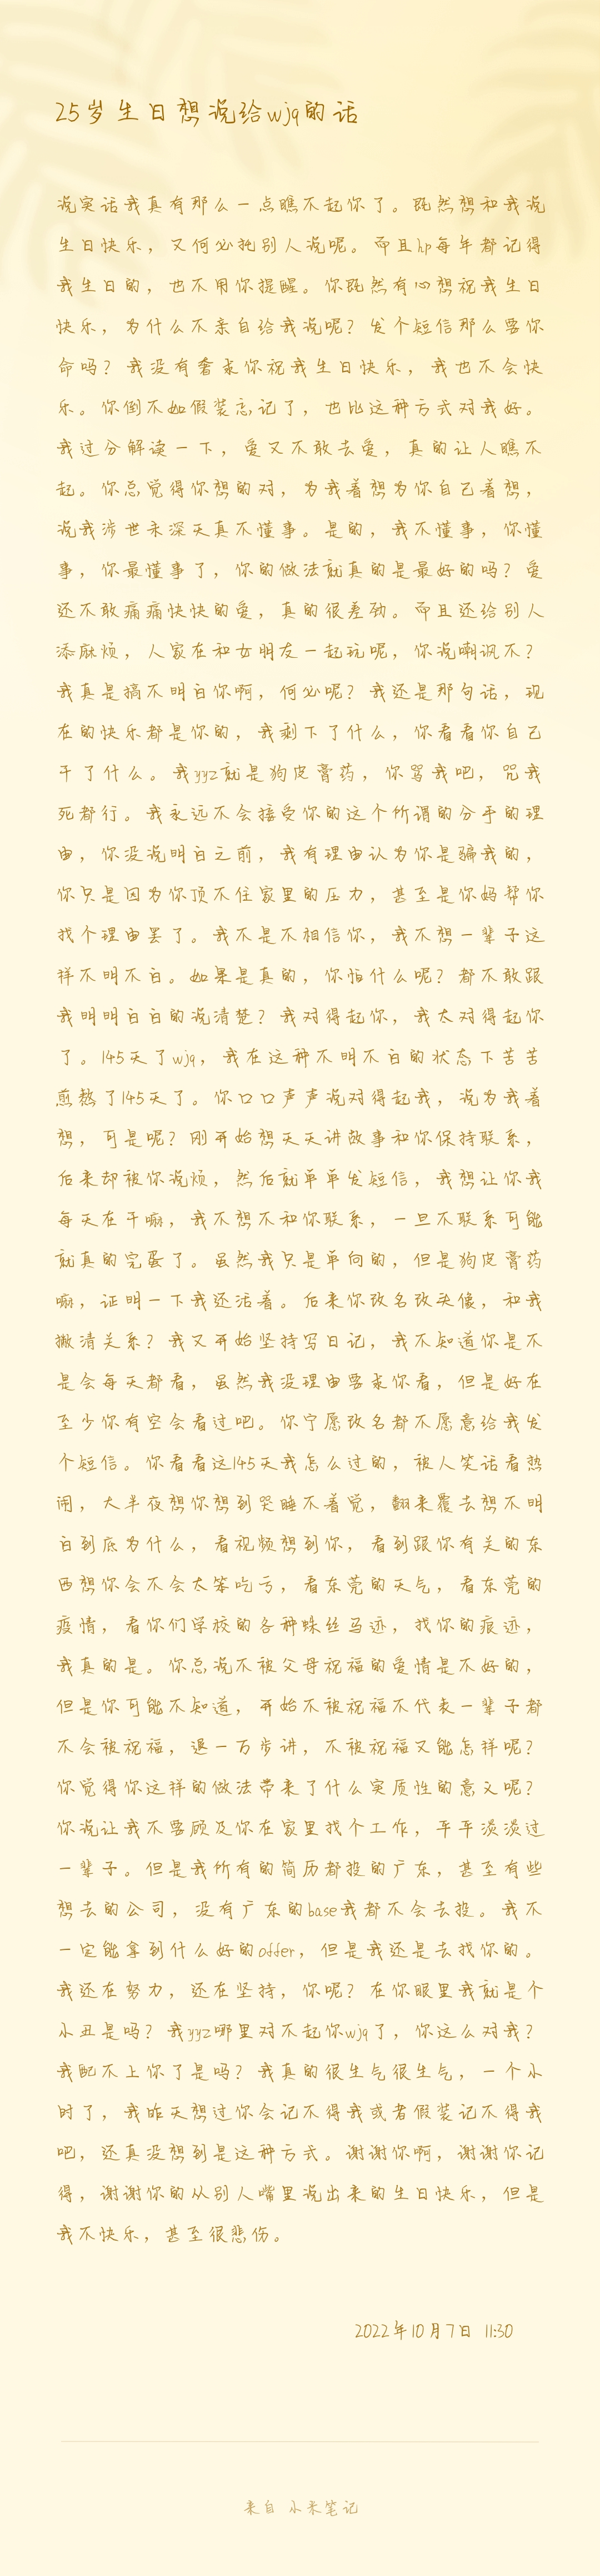 25岁生日想说给wjq的话
说实话我真有那么一点瞧不起你了。既然想和我说
生日快乐，又何必托别人说呢。而且hp每年都记得
我生日的，也不用你提醒。你既然有心想祝我生日
快乐，为什么不亲自给我说呢？发个短信那么要你
命吗？我没有奢求你祝我生日快乐，我也不会快
乐。你倒不如假装忘记了，也比这种方式对我好。
我过分解读一下，爱又不敢去爱，真的让人瞧不
起。你总觉得你想的对，为我着想为你自己着想，
说我涉世未深天真不懂事。是的，我不懂事，你懂
事，你最懂事了，你的做法就真的是最好的吗？爱
还不敢痛痛快快的爱，真的很差劲。而且还给别人
添麻烦，人家在和女朋友一起玩呢，你说嘲讽不？
我真是搞不明白你啊，何必呢？我还是那句话，现
在的快乐都是你的，我剩下了什么，你看看你自己
干了什么。我yyz就是狗皮膏药，你骂我吧，咒我
死都行。我永远不会接受你的这个所谓的分手的理
由，你没说明白之前，我有理由认为你是骗我的，
你只是因为你顶不住家里的压力，甚至是你妈帮你
找个理由罢了。我不是不相信你，我不想一辈子这
样不明不白。如果是真的，你怕什么呢？都不敢跟
我明明白白的说清楚？我对得起你，我太对得起你
了。145天了wjq，我在这种不明不白的状态下苦苦
煎熬了145天了。你口口声声说对得起我，说为我着
想，可是呢？刚开始想天天讲故事和你保持联系，
后来却被你说烦，然后就单单发短信，我想让你我
每天在干嘛，我不想不和你联系，一旦不联系可能
就真的完蛋了。虽然我只是单向的，但是狗皮膏药
嘛，证明一下我还活着。后来你改名改头像，和我
撇清关系？我又开始坚持写日记，我不知道你是不
是会每天都看，虽然我没理由要求你看，但是好在
至少你有空会看过吧。你宁愿改名都不愿意给我发
个短信。你看看这145天我怎么过的，被人笑话看热
闹，大半夜想你想到哭睡不着觉，翻来覆去想不明
白到底为什么，看视频想到你，看到跟你有关的东
西想你会不会太笨吃亏，看东莞的天气，看东莞的
疫情，看你们学校的各种蛛丝马迹，找你的痕迹，
我真的是。你总说不被父母祝福的爱情是不好的，
但是你可能不知道，开始不被祝福不代表一辈子都
不会被祝福，退一万步讲，不被祝福又能怎样呢？
你觉得你这样的做法带来了什么实质性的意义呢？
你说让我不要顾及你在家里找个工作，平平淡淡过
一辈子。但是我所有的简历都投的广东，甚至有些
想去的公司，没有广东的base我都不会去投。我不
一定能拿到什么好的offer，但是我还是去找你的。
我还在努力，还在坚持，你呢？在你眼里我就是个
小丑是吗？我yyz哪里对不起你wjq了，你这么对我？
我配不上你了是吗？我真的很生气很生气，一个小
时了，我昨天想过你会记不得我或者假装记不得我
吧，还真没想到是这种方式。谢谢你啊，谢谢你记
得，谢谢你的从别人嘴里说出来的生日快乐，但是
我不快乐，甚至很悲伤。
2022年10月7日 11:30
来自 小米笔记